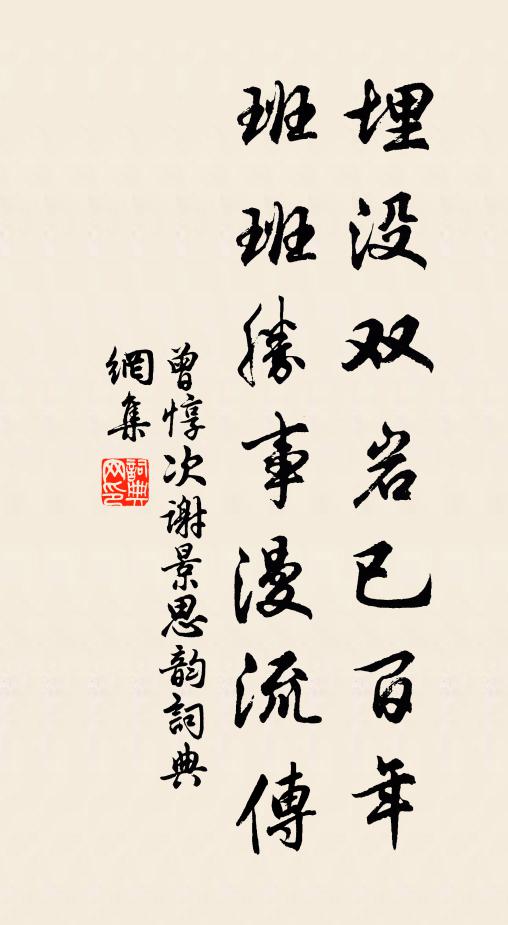 埋没双岩已百年
班班勝事漫流傳
曾惇次谢景思韵詞典
網集
詞典
网印